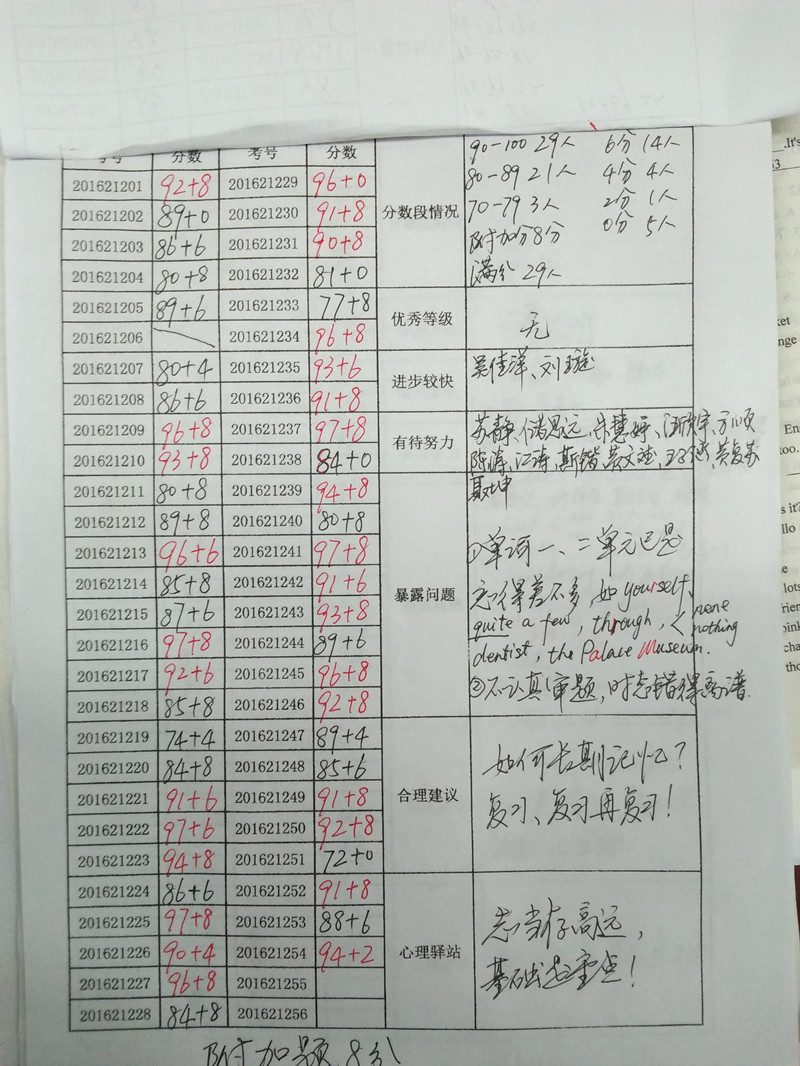 考号 分数 考号 分数
201621201 92+8 201621229 96+0
201621202 89+0 201621230 91+8
201621203 86+6 201621231 90+8
201621204 80+8 201621232 81+0
201621205 89+6 201621233 77+8
201621206 201621234 96+8
201621207 80+4 201621235 93+6
201621208 86+6 201621236 91+8
201621209 96+8 201621237 97+8
201621210 93+8 201621238 84+0
201621211 80+8 201621239 94+8
201621212 89+8 201621240 80+8
201621213 96+6 201621241 97+8
201621214 85+8 201621242 91+6
201621215 87+6 201621243 93+8
201621216 97+8 201621244 89+6
201621217 92+6 201621245 96+8
201621218 85+8 201621246 92+8
201621219 74+4 201621247 89+4
201621220 84+8 201621248 85+6
201621221 91+6 201621249 91+8
201621222 97+6 201621250 92+8
201621223 94+8 201621251 72+0
201621224 86+6 201621252 91+8
201621225 97+8 201621253 88+6
201621226 90+4 201621254 94+2
201621227 96+8 201621255
201621228 84+8 201621256
分数段情况
90-100 29人 6分 14人
80-89 21人 4分 4人
70-79 3人 2分 1人
附加分8分 0分 5人
满分 29人
优秀等级
无
进步较快
吴佳洋、刘璇
有待努力
苏静、储思远、朱慧婷
陈涛、江海
暴露问题
①单词一、二单元已是
忘得差不多, 如 yourself、
quite a few, through, none
nothing
dentist, the Palace Museum.
②不认真审题, 时态错得离谱.
合理建议
如何长期记忆?
复习、复习再复习!
心理驿站
志当存高远,
基础是重点!
附加题 8分